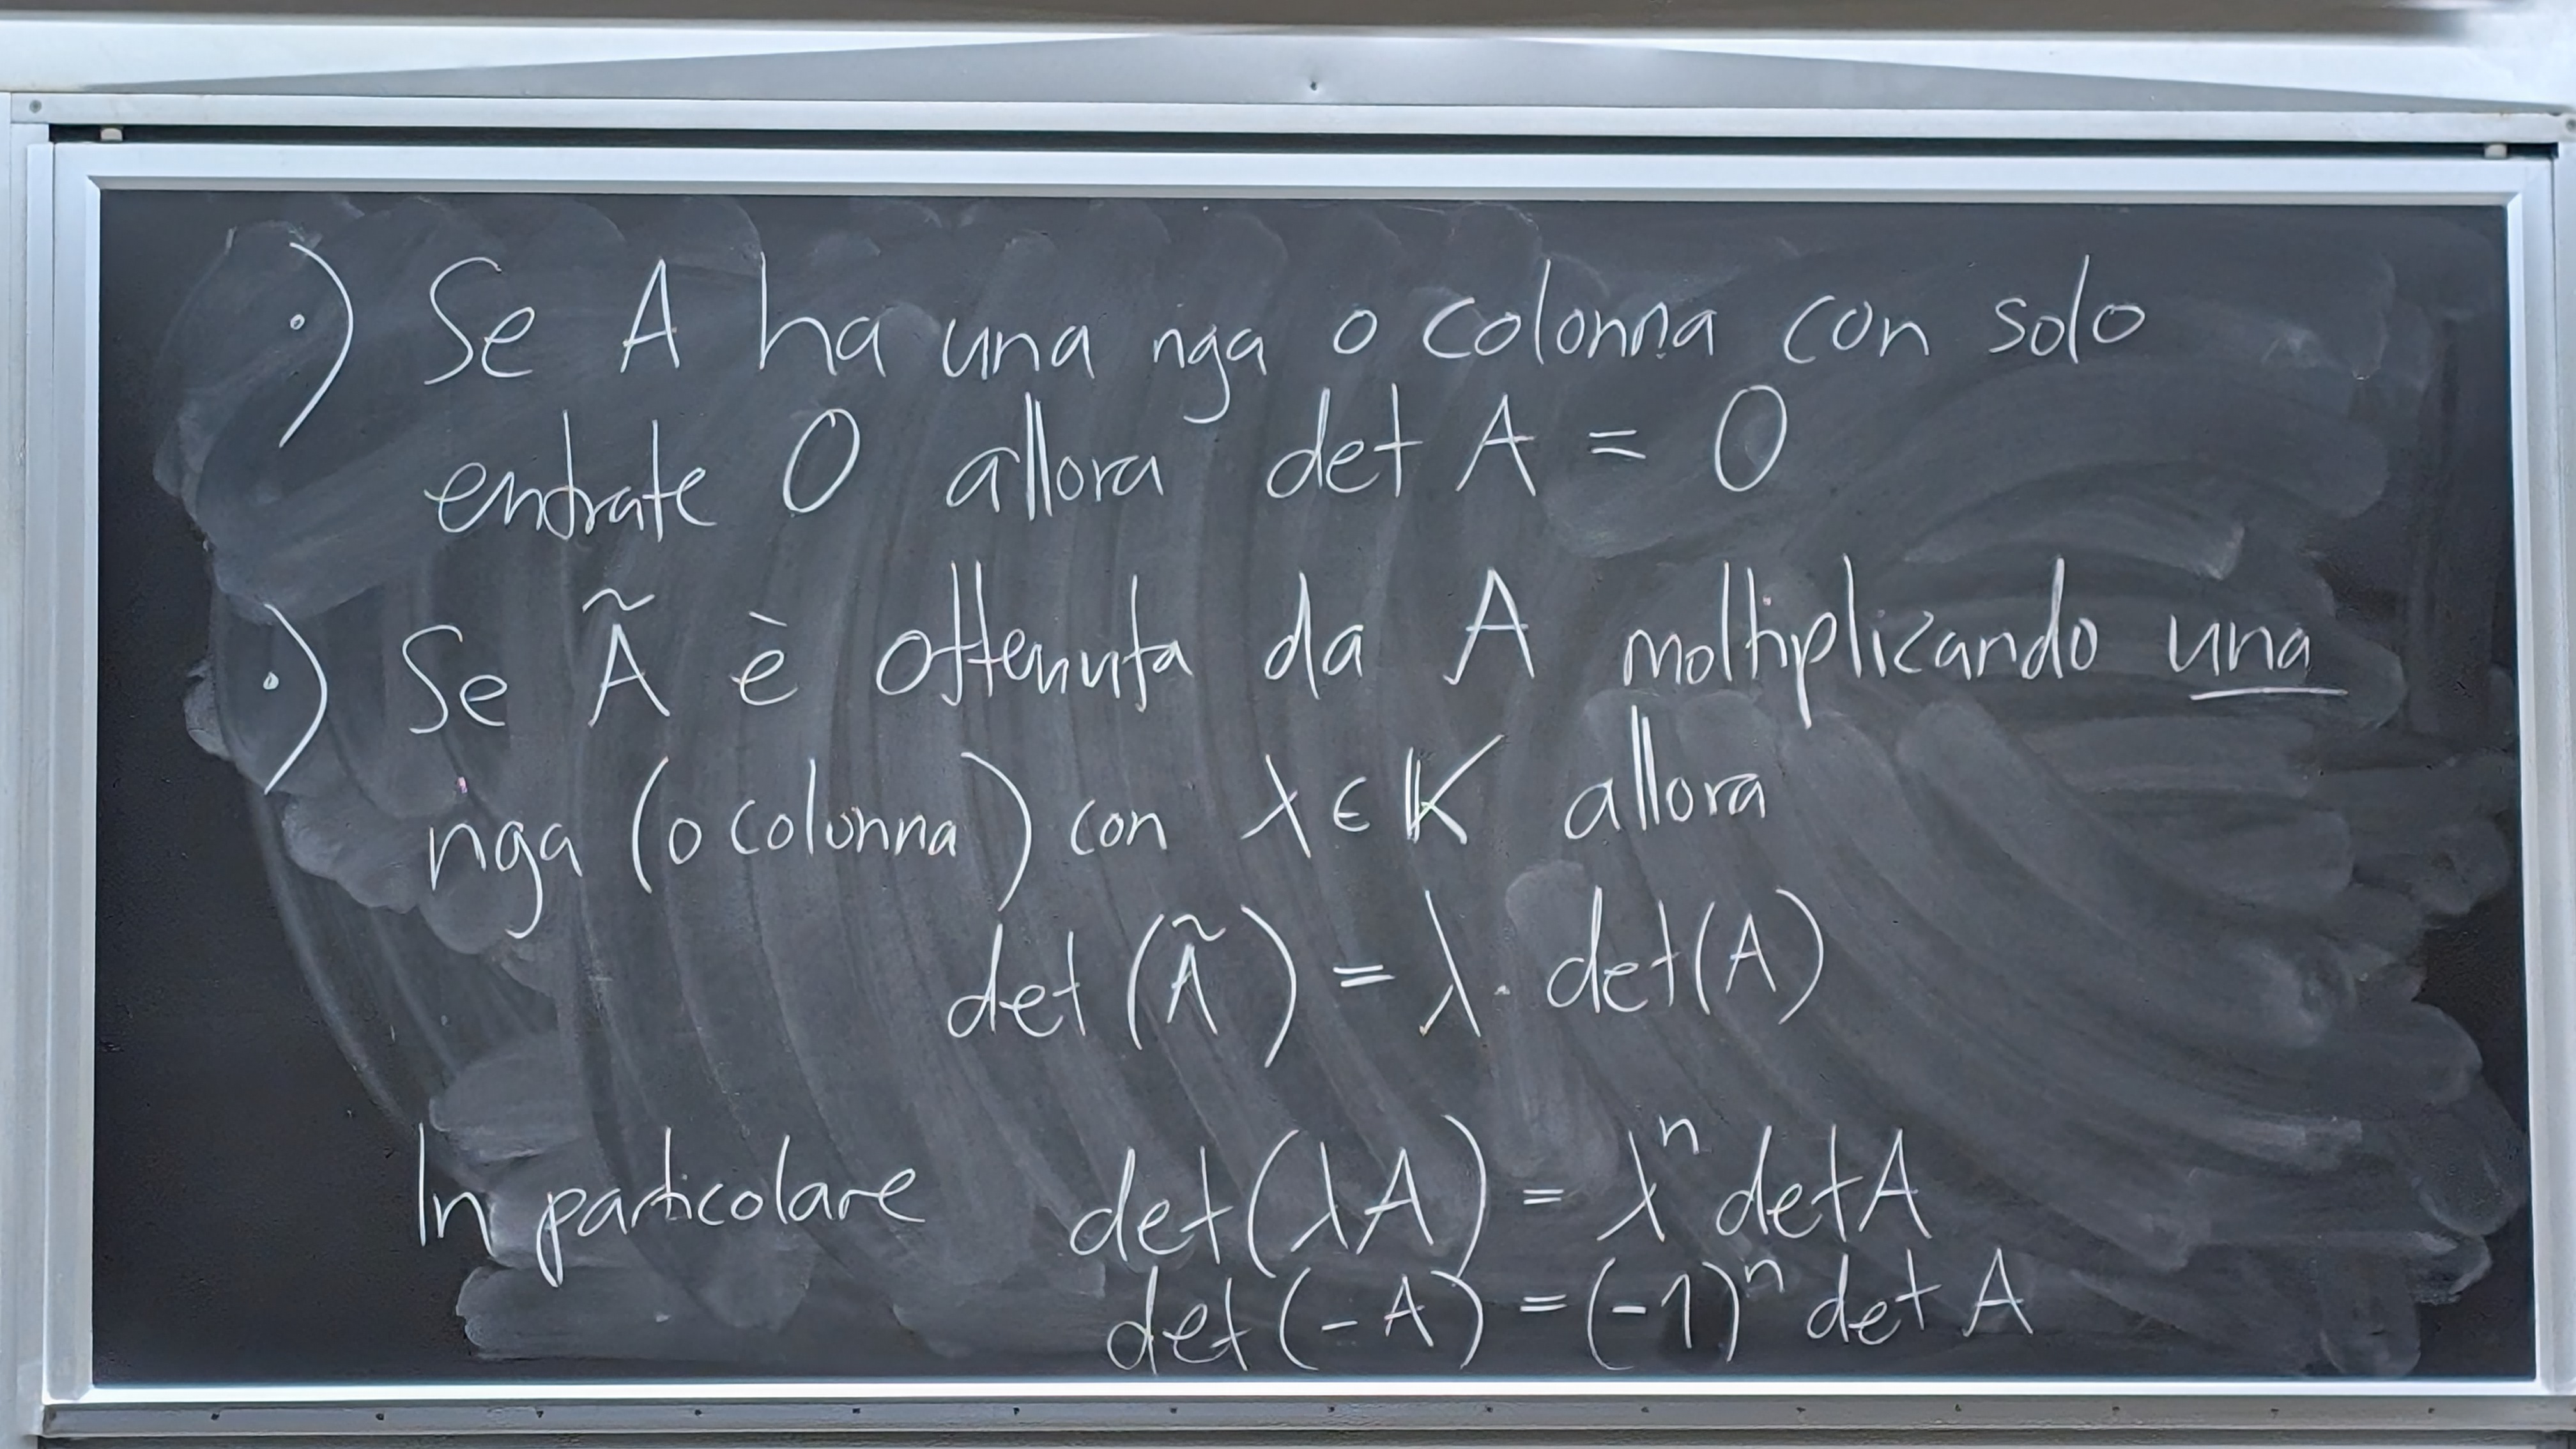 ·) Se A ha una riga o colonna con solo
entrate 0 allora det A = 0
·) Se Ã è ottenuta da A moltiplicando una
riga (o colonna) con λ ∈ 𝕂 allora
det (Ã) = λ · det(A)
In particolare det(λA) = λⁿ det A
det (-A) = (-1)ⁿ det A